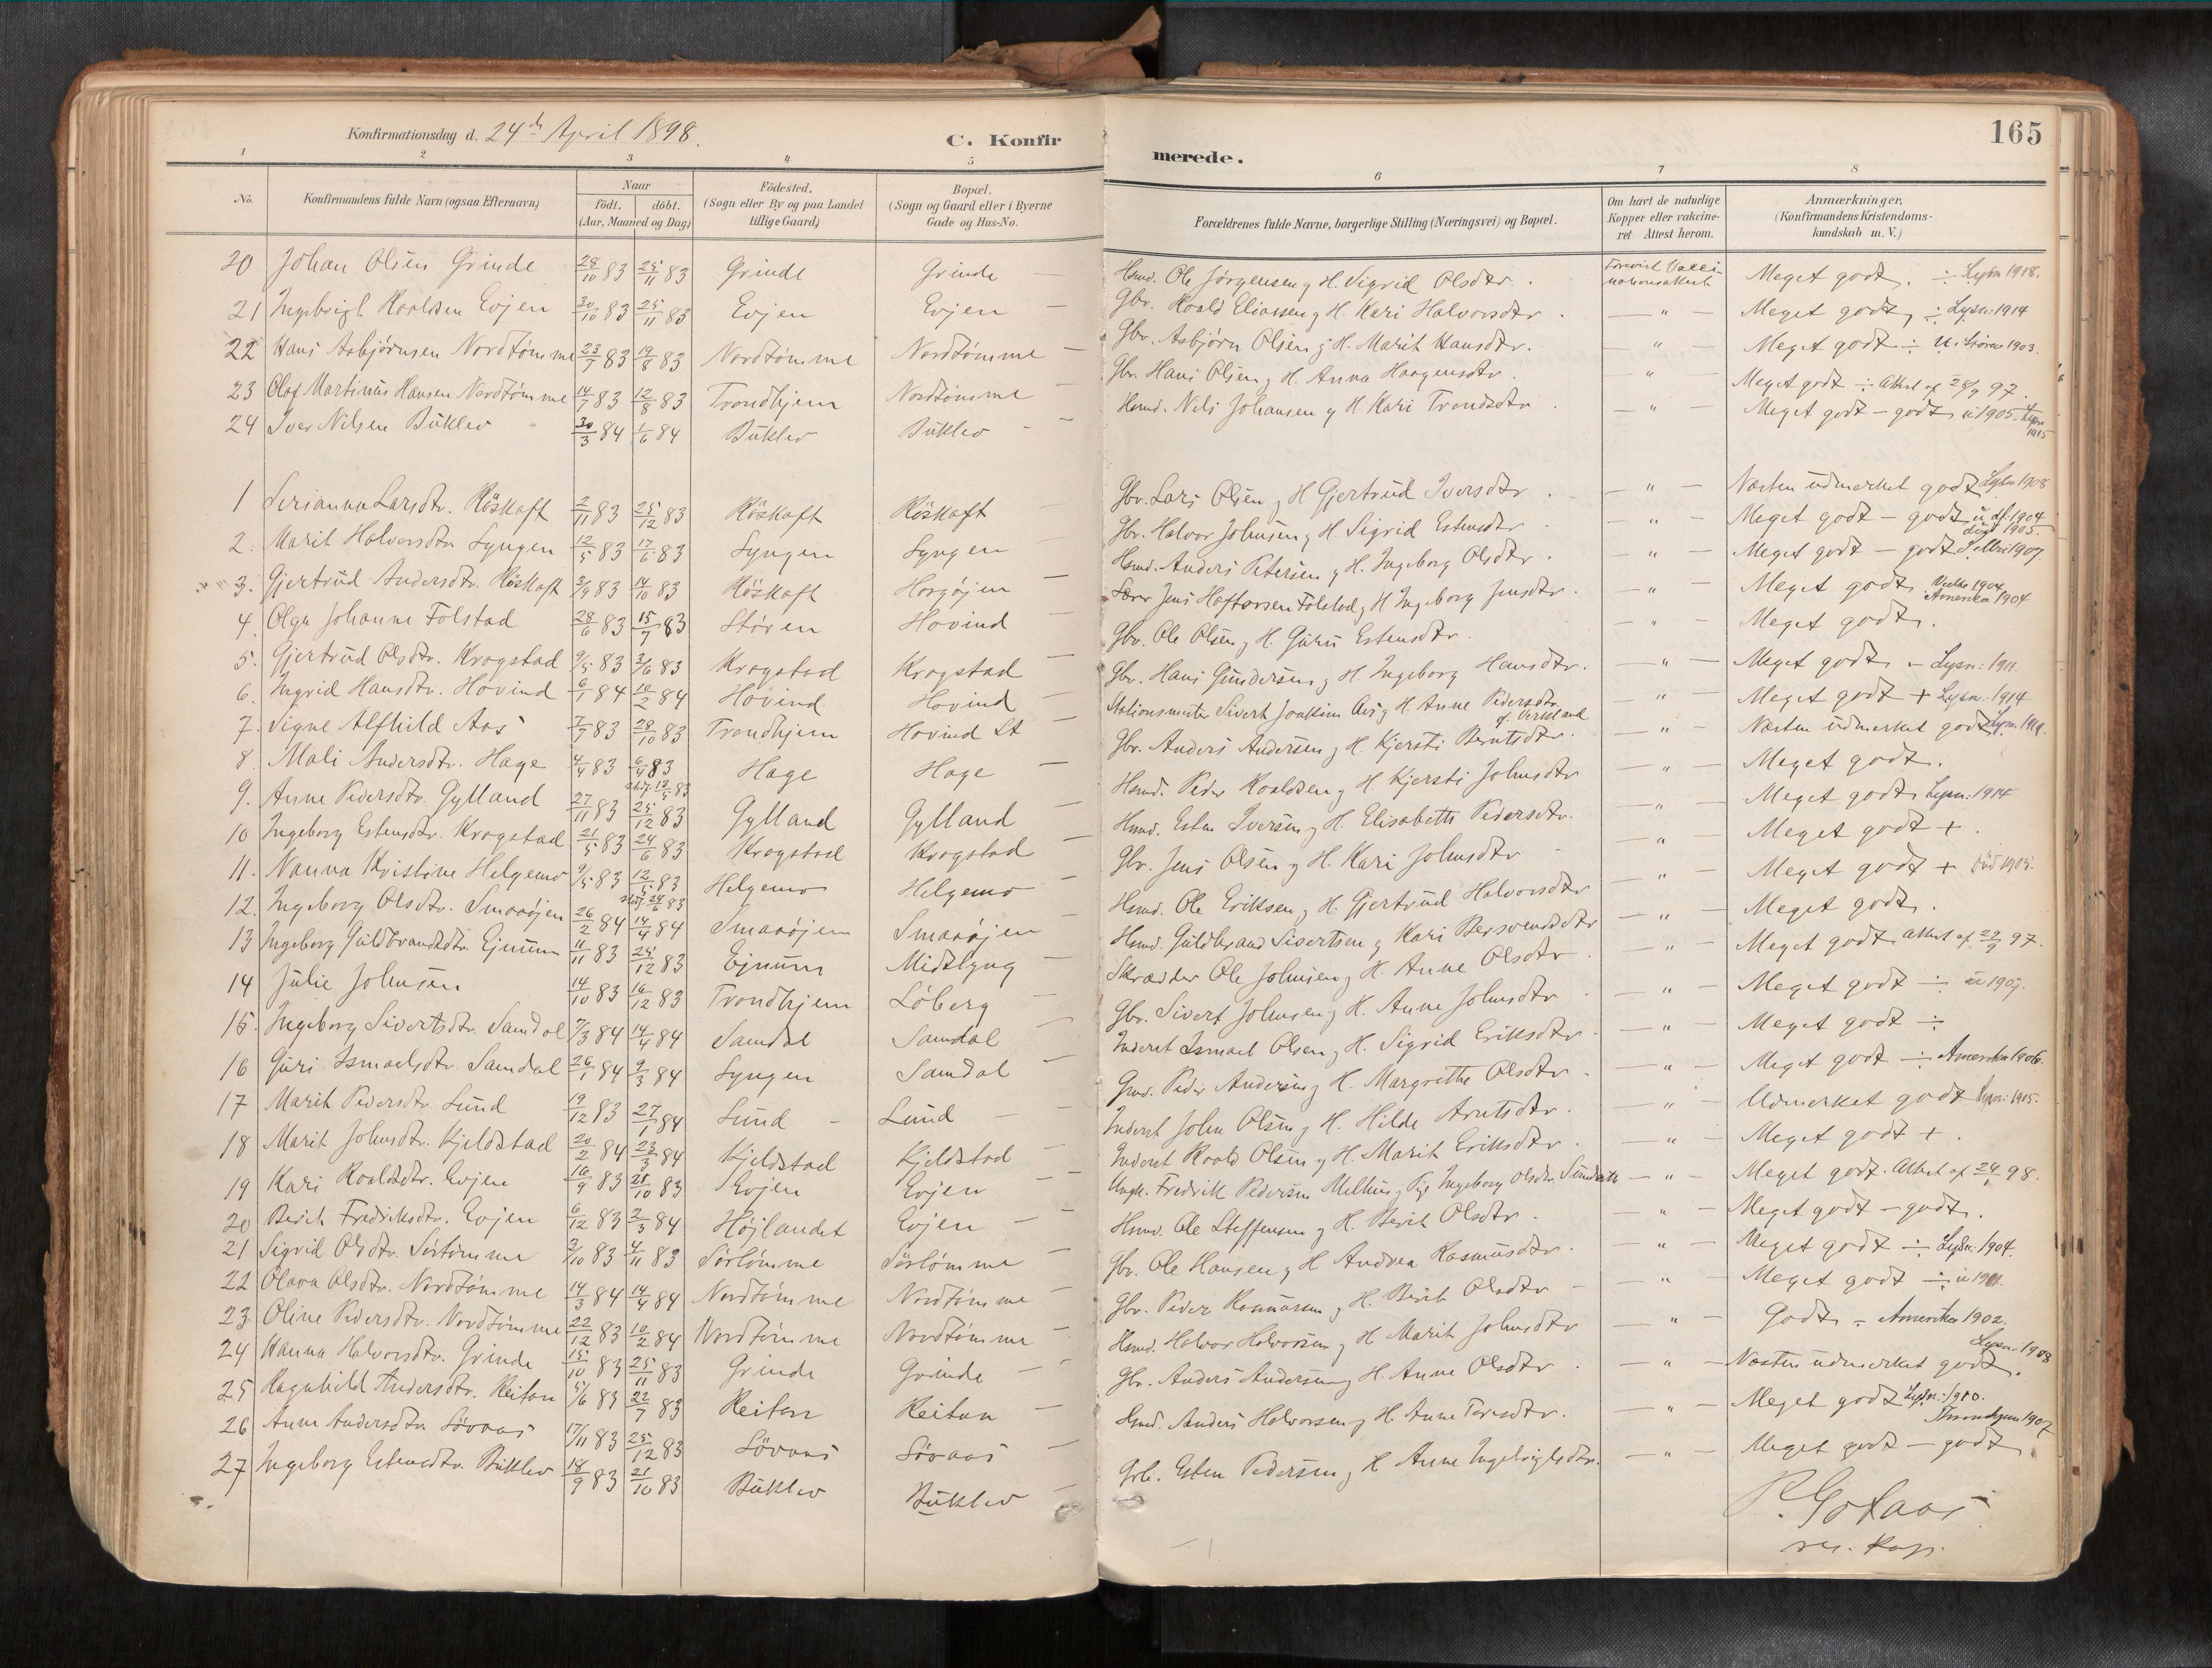 Konfirmationsdag d. 24de April 1898.
C. Konfirmerede.
165
1 2 3 4 5 6 7 8
No.
Konfirmandens fulde Navn (ogsaa Efternavn)
Naar
födt. döbt.
(Aar, Maaned og Dag)
Födested.
(Sogn eller By og paa Landet
tillige Gaard)
Bopæl.
(Sogn og Gaard eller i Byerne
Gade og Hus-No.
Forældrenes fulde Navne, borgerlige Stilling (Næringsvei) og Bopæl.
Om havt de naturlige
Kopper eller vakcine-
ret Attest herom.
Anmærkninger.
(Konfirmandens Kristendoms-
kundskab m. V.)
20 Johan Olsen Grinde 28/10 83 25/11 83 Grinde Grinde — Hsmd. Ole Jørgensen og H. Sigrid Olsdtr. Forevist Vacci-nationsattest Meget godt. ÷ Lysn 1918.
21 Ingebrigt Roaldsen Evjen 30/10 83 25/11 83 Evjen Evjen — Gbr. Roald Eliassen og H. Kari Halvorsdtr. — " — Meget godt, ÷ Lysn: 1914
22 Hans Asbjørnsen Nordtömme 23/7 83 19/8 83 Nordtömme Nordtömme — Gbr. Asbjørn Olsen og H. Marit Hansdtr. — " — Meget godt ÷ u. Støren 1903.
23 Olaf Martinus Hansen Nordtömme 14/7 83 12/8 83 Trondhjem Nordtömme Gbr. Hans Olsen og H. Anna Haagensdtr. " Meget godt ÷ Attest af 28/9 97.
24 Iver Nilsen Buklev 30/3 84 1/6 84 Buklev Buklev — Hsmd. Nils Johansen og H Kari Trondsdtr. — " — Meget godt - godt u 1905. Lysn 1915
1 Serianna Larsdtr. Röskaft 2/11 83 25/12 83 Röskaft Röskaft — Gbr. Lars Olsen og H Gjertrud Iversdtr. — " — Næsten udmerket godt Lysn 1908
2. Marit Halvorsdtr Lyngen 12/5 83 17/6 83 Lyngen Lyngen — Gbr. Halvor Johnsen og H. Sigrid Estensdtr — " — Meget godt - godt 1904 1905.
3. Gjertrud Andersdtr. Röskaft 3/9 83 14/10 83 Röskaft Horgöjen — Hsmd. Anders Petersen og H. Ingeborg Olsdtr. — " — Meget godt - godt 1907.
4. Olga Johanne Folstad 28/6 83 15/7 83 Stören Hovind Lærer Jens Haftorsen Folstad og H Ingeborg Jensdtr. — " — Meget godt. Amerika 1904
5. Gjertrud Olsdtr. Krogstad 9/5 83 3/6 83 Krogstad Krogstad — Gbr. Ole Olsen og H. Guru Estensdtr. — " — Meget godt.
6. Ingrid Hansdtr. Hovind 6/1 84 10/2 84 Hovind Hovind — Gbr. Hans Gundersen og H. Ingeborg Hansdtr. — " — Meget godt - Lysn: 1911.
7. Signe Alfhild Aas 7/7 83 28/10 83 Trondhjem Hovind St Stationsmester Sivert Joakim Aas og H. Anne Pedersdtr. f. Virkland " Meget godt + Lysn. 1914
8. Mali Andersdtr. Hage 4/4 83 6/4 83 Hage Hage — Gbr. Anders Andersen og H. Kjersti Berntsdtr. — " — Næsten udmerket godt
9. Anne Pedersdtr. Gylland 27/11 83 25/12 83 Gylland Gylland Hsmd. Peder Roaldsen og H. Kjersti Johnsdtr — " — Meget godt.
10 Ingeborg Estensdtr. Krogstad 21/5 83 24/6 83 Krogstad Krogstad Hsmd. Esten Iversen og H. Elisabeth Pedersdtr. — " — Meget godt. Lysn: 1914
11. Nanna Kristine Helgemo 9/5 83 12/5 83 Helgemo Helgemo Gbr. Jens Olsen og H. Kari Johnsdtr — " Meget godt +.
12. Ingeborg Olsdtr. Smaaöjen 26/2 84 14/4 84 Smaaöjen Smaaöjen Hsmd. Ole Eriksen og H. Gjertrud Halvorsdtr — " — Meget godt + Död 1905.
13 Ingeborg Guldbrandsdtr. Ejnum 11/11 83 25/12 83 Ejnum Midtlyng Hsmd. Guldbrand Sivertsen og Kari Bersvendsdtr — " — Meget godt.
14 Julie Johnsen 14/10 83 16/12 83 Trondhjem Löberg — Skrædder Ole Johnsen og H. Anne Olsdtr — " — Meget godt Attest af 29/9 97.
15. Ingeborg Sivertsdtr. Samdal 7/3 84 14/4 84 Samdal Samdal Gbr. Sivert Johnsen og H. Anne Johnsdtr — " — Meget godt ÷ u 1907.
16 Guri Ismaelsdtr. Samdal 26/1 84 9/3 84 Lyngen Samdal — Inderst Ismael Olsen og H. Sigrid Eriksdtr — " — Meget godt ÷
17 Marit Pedersdtr. Lund 19/12 83 27/1 84 Lund - Lund — Peder Andersen og H. Margrethe Olsdtr — " — Meget godt ÷ Amerika 1906.
18 Marit Johnsdtr. Kjeldstad 20/2 84 23/3 84 Kjeldstad Kjeldstad — Inderst John Olsen og H. Hilde Arntsdtr. — " — Udmerket godt Lysn: 1905.
19 Kari Roaldsdtr. Evjen 16/9 83 21/10 83 Evjen Evjen — Inderst Roald Olsen og H. Marit Eriksdtr. — " — Meget godt +.
20 Berit Fredriksdtr. Evjen 6/12 83 2/3 84 Höjlandet Evjen — Ungk. Fredrik Pedersen Melhus og Pige Ingeborg Olsdtr. — " — Meget godt. Attest af 24/1 98.
21 Sigrid Olsdtr. Sörtömme 3/10 83 4/11 83 Sörtömme Sörtömme — Hsmd. Ole Steffensen og H. Berit Olsdtr — " — Meget godt - godt.
22 Olava Olsdtr. Nordtömme 14/3 84 14/4 84 Nordtömme Nordtömme — Gbr. Ole Hansen og H Andrea Rasmusdtr. — " — Meget godt ÷ Lysn. 1904.
23 Oline Pedersdtr. Nordtömme 22/12 83 10/2 84 Nordtömme Nordtömme — Gbr. Peder Rasmussen og H. Berit Olsdtr — " — Meget godt ÷ u 1901.
24 Hanna Halvorsdtr. Grinde 15/10 83 25/11 83 Grinde Grinde — Hsmd. Halvor Halvorsen og H Marit Johnsdtr — " — Godt. - Amerika 1902.
25 Ragnhild Andersdtr. Reitan 5/6 83 22/7 83 Reitan Reitan — Gbr. Anders Andersen og H. Anne Olsdtr. — " — Næsten udmerket godt. Lysn: 1908
26 Anne Andersdtr. Sövaas 17/11 83 25/12 83 Sövaas Sövaas — Hsmd. Anders Halvorsen og H. Anne Toresdtr. — " — Meget godt Lysn: 1910.
27 Ingeborg Estensdtr. Buklev 18/9 83 21/10 83 Buklev Buklev — Grb. Esten Pedersen og H Anne Ingebrigtsdtr. — " — Meget godt - godt Trondhjem 1907
P. Gotaas
res. kap.